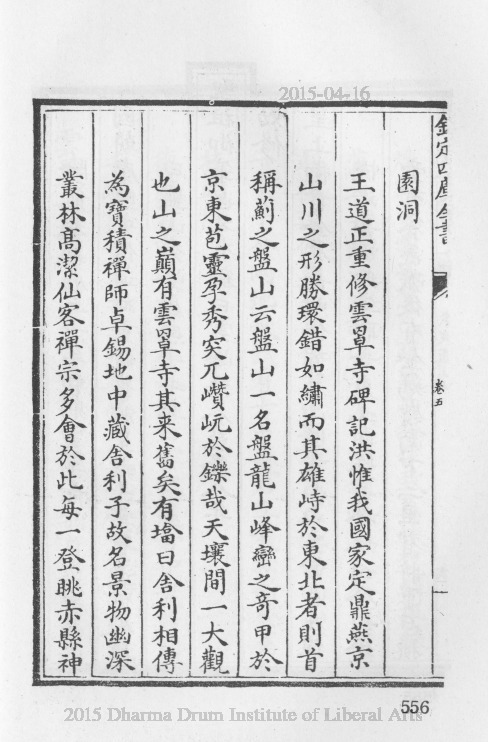 2015-04-16
欽定四庫全書
卷五
園洞
王道正重修雲罩寺碑記洪惟我國家定鼎燕京
山川之形勝環錯如繡而其雄峙於東北者則首
稱薊之盤山云盤山一名盤龍山峰巒之奇甲於
京東苞靈孕秀突兀巑岏於鑠哉天壤間一大觀
也山之巔有雲罩寺其来舊矣有墖曰舍利相傳
為寶積禪師卓錫地中藏舍利子故名景物幽深
叢林髙潔仙客禪宗多會於此每一登眺赤縣神
556
2015 Dharma Drum Institute of Liberal Arts